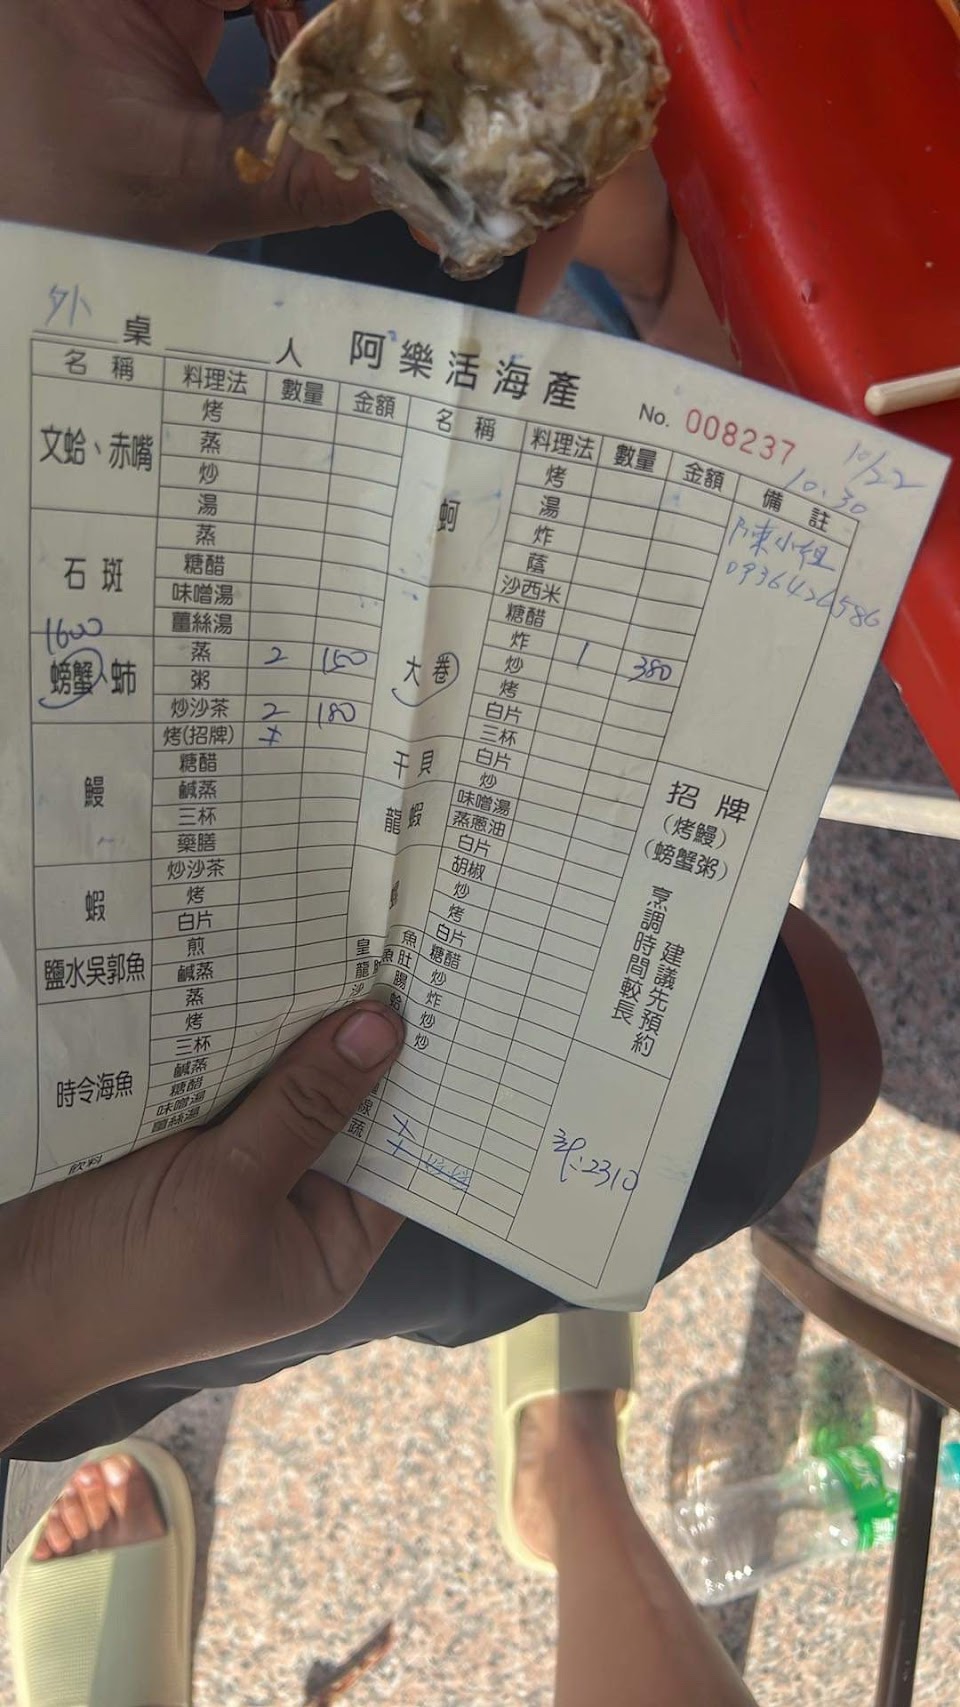 外 桌 人 阿樂活海產
No. 008237
10/22
10:30
名稱 料理法 數量 金額 名稱 料理法 數量 金額 備註
陳小姐
0936426586
文蛤、赤嘴
烤
蒸
炒
湯
石斑
蒸
糖醋
味噌湯
薑絲湯
1600
螃蟹、蚵
蒸 2 150
粥
炒沙茶 2 180
鰻
烤(招牌)
糖醋
鹹蒸
三杯
藥膳
蝦
炒沙茶
烤
白片
鹽水吳郭魚
煎
鹹蒸
時令海魚
蒸
烤
三杯
鹹蒸
糖醋
味噌湯
薑絲湯
飲料
蚵
烤
湯
炸
蔭
大卷
沙西米
糖醋
炸
炒 1 380
烤
白片
三杯
干貝
白片
炒
龍蝦
味噌湯
蒸蔥油
白片
胡椒
炒
烤
白片
糖醋
炒
炸
炒
炒
招牌
(烤鰻)
(螃蟹粥)
建議先預約
烹調時間較長
2310